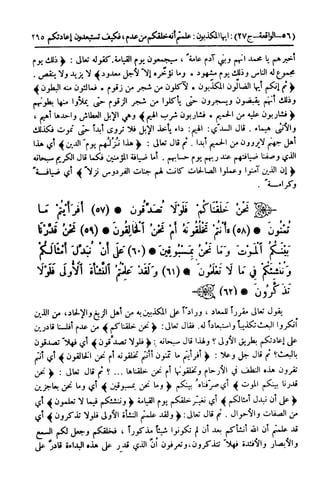 (٥٦ ـ الواقعة ـ ح ٢٧): أيها المكذبون: علمتم أنه خلقكم من عدم، فكيف تستبعدون إعادتكم ٢٦٥
أخبرهم يا محمد انهم وبني آدم عامةً، سيجمعون يوم القيامة. كقوله تعالى: ﴿ذلك يوم
مجموع له الناس وذلك يوم مشهود * وما نؤخره إلاّ لأجل معدود﴾ لا يزيد ولا ينقص.
﴿ثم إنكم أيها الضالون المكذبون * لآكلون من شجر من زقوم * فمالئون منه البطون﴾
وذلك أنهم يقبضون ويسجرون حتى يأكلوا من شجر الزقوم حتى يملأوا منها بطونهم
﴿فشاربون عليه من الحميم * فشاربون شرب الهيم﴾ وهي الإبل العطاش واحدها أهيم،
والأنثى هيماء. قال السدّي: الهيم: داء يأخذ الإبل فلا تروى أبداً حتى تموت فكذلك
أهل جهنم لا يروون من الحميم أبداً. ثم قال تعالى: ﴿هذا نزلهم يوم الدين﴾ أي هذا
الذي وصفنا ضيافتهم عند ربهم يوم حسابهم. أما ضيافة المؤمنين فكما قال الكريم سبحانه
﴿إن الذين آمنوا وعملوا الصالحات كانت لهم جنات الفردوس نزلاً﴾ أي ضيافةً
وكرامة.
﴿نَحْنُ خَلَقْنَاكُمْ فَلَوْلَا تُصَدِّقُونَ (٥٧) أَفَرَأَيْتُمْ مَا
تُمْنُونَ (٥٨) أَأَنْتُمْ تَخْلُقُونَهُ أَمْ نَحْنُ الْخَالِقُونَ (٥٩) نَحْنُ قَدَّرْنَا
بَيْنَكُمُ الْمَوْتَ وَمَا نَحْنُ بِمَسْبُوقِينَ (٦٠) عَلَى أَنْ نُبَدِّلَ أَمْثَالَكُمْ
وَنُنْشِئَكُمْ فِي مَا لَا تَعْلَمُونَ (٦١) وَلَقَدْ عَلِمْتُمُ النَّشْأَةَ الْأُولَى فَلَوْلَا
تَذَكَّرُونَ (٦٢)﴾
يقول تعالى مقرراً للمعاد، وراداً على المكذبين به من أهل الزيغ والإلحاد، من الذين
أنكروا البعث تكذيباً واستبعاداً له. فقال تعالى: ﴿نحن خلقناكم﴾ من عدم أفلسنا قادرين
على إعادتكم بطريق الأولى؟ ولهذا قال سبحانه: ﴿فلولا تصدقون﴾ أي فهلاّ تصدقون
بالبعث؟ ثم قال جل وعلا: ﴿أفرأيتم ما تمنون أأنتم تخلقونه أم نحن الخالقون﴾ أي أنتم
تقرون هذه النطف في الأرحام وتخلقونها أم نحن خلقناها ...؟ ثم قال تعالى: ﴿نحن
قدرنا بينكم الموت﴾ أي صرّفناه بينكم ﴿وما نحن بمسبوقين﴾ أي وما نحن بعاجزين
﴿على أن نبدل أمثالكم﴾ أي نغيّر خلقكم يوم القيامة ﴿وننشئكم فيما لا تعلمون﴾ أي
من الصفات والأحوال. ثم قال تعالى: ﴿ولقد علمتم النشأة الأولى فلولا تذكرون﴾ أي
قد علمتم أن الله أنشأكم بعد أن لم تكونوا شيئاً مذكوراً، فخلقكم وجعل لكم السمع
والأبصار والأفئدة فهلاّ تتذكرون، وتعرفون أنّ الذي قدر على هذه البداءة قادرٌ على